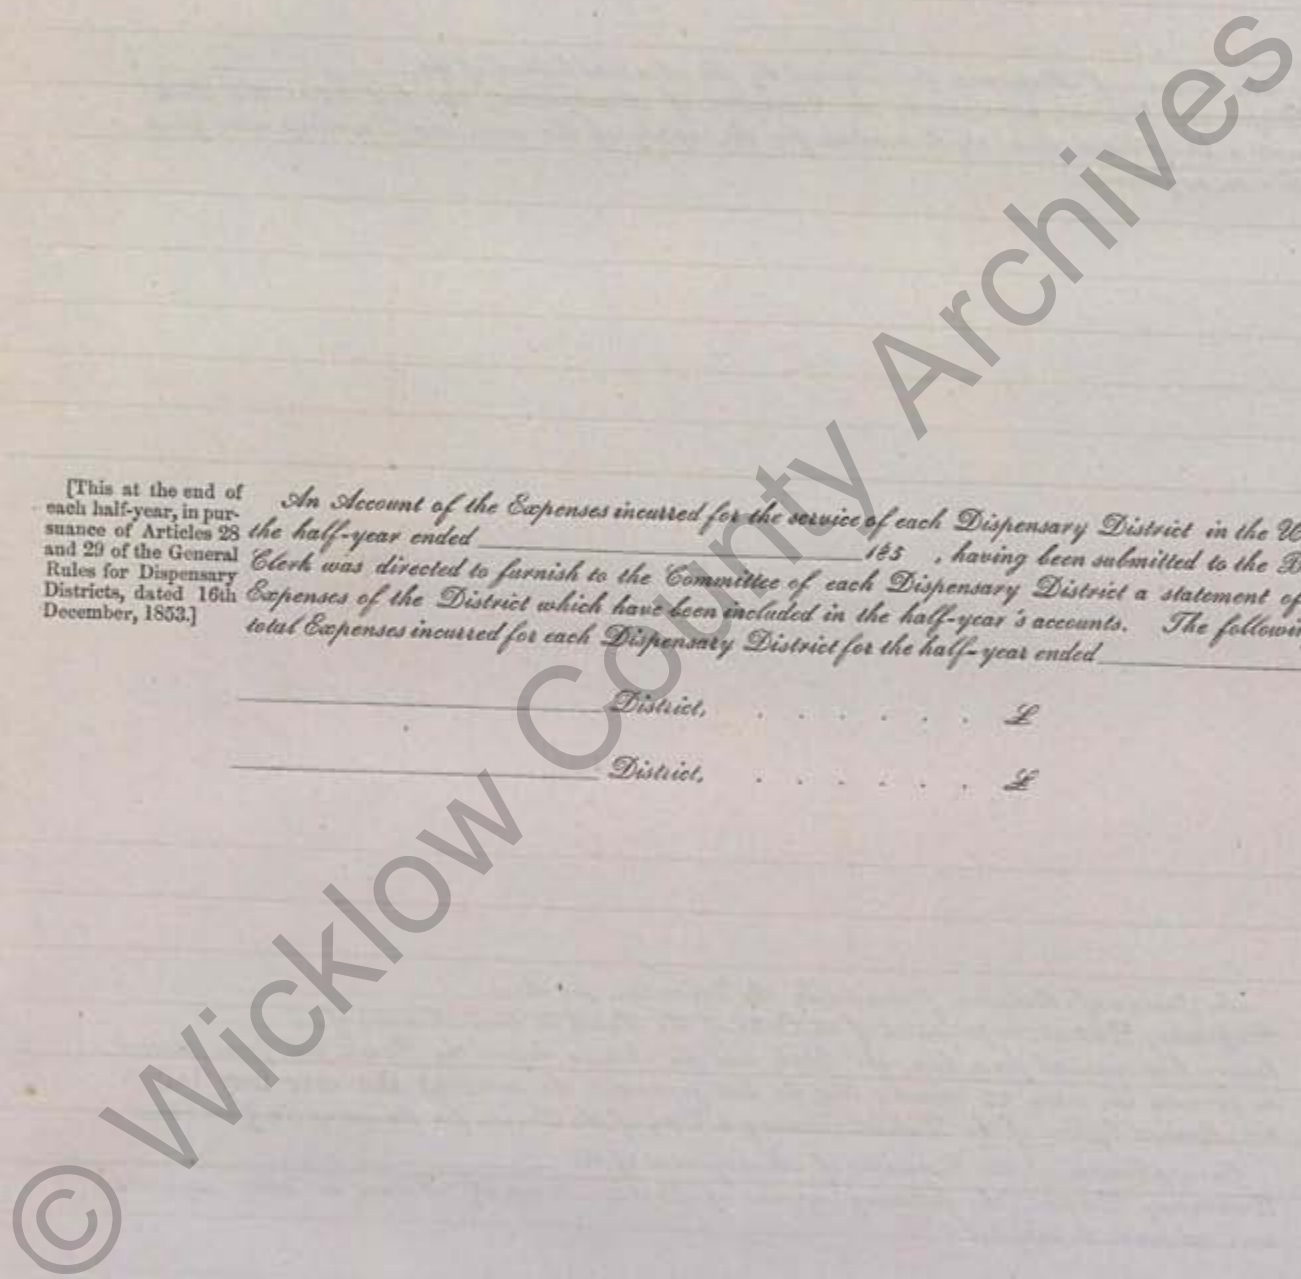 [This at the end of
each half-year, in pur-
suance of Articles 28
and 29 of the General
Rules for Dispensary
Districts, dated 16th
December, 1853.]
An Account of the Expenses incurred for the service of each Dispensary District in the U
the half-year ended 185 , having been submitted to the B
Clerk was directed to furnish to the Committee of each Dispensary District a statement of
Expenses of the District which have been included in the half-year's accounts. The followin
total Expenses incurred for each Dispensary District for the half-year ended
District, . . . . . . £
District, . . . . . . £
© Wicklow County Archives